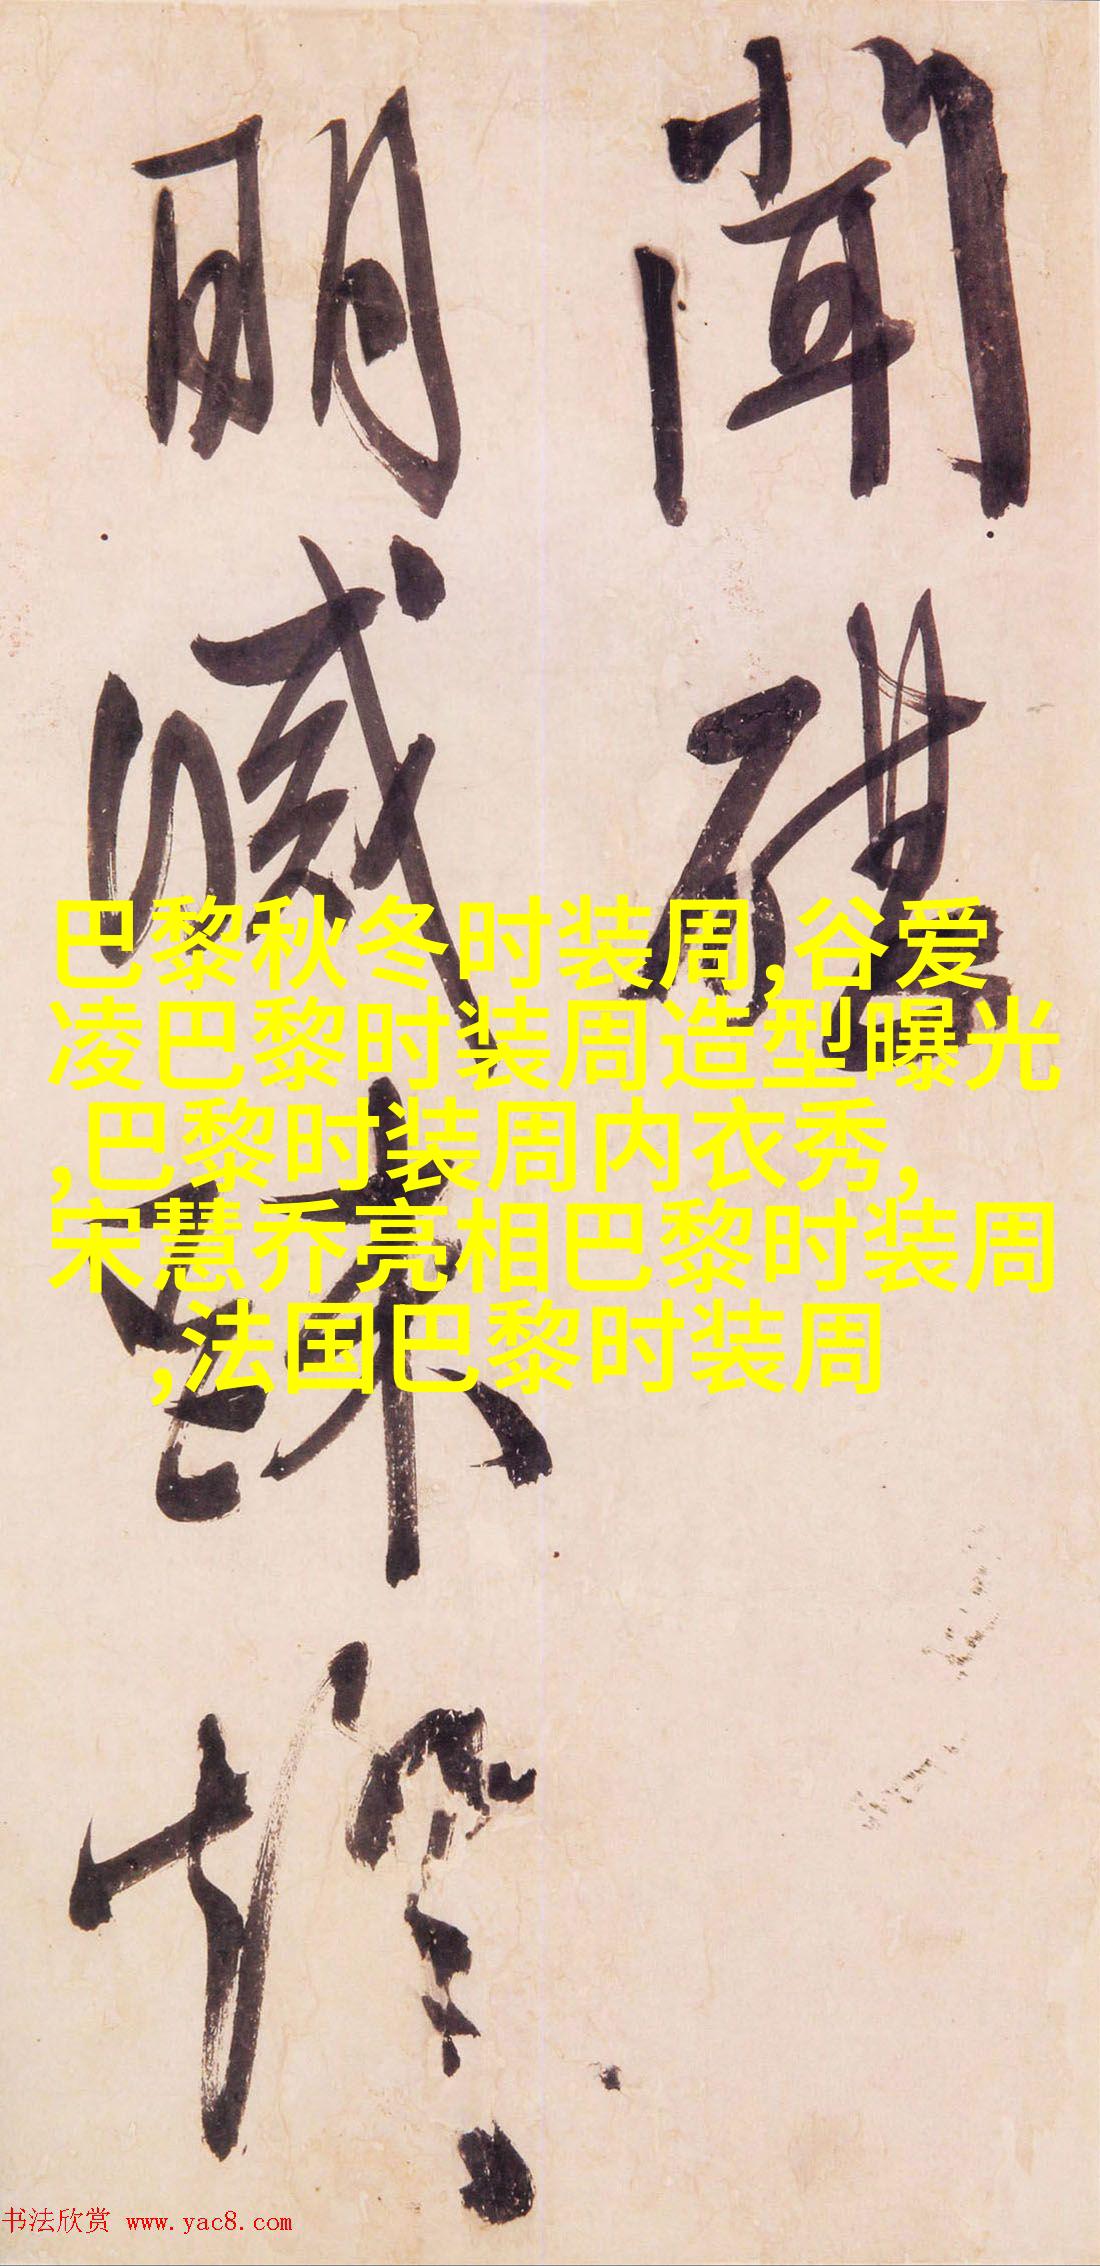 聞
明
巴黎秋冬时装周,谷爱
凌巴黎时装周造型曝光
,巴黎时装周内衣秀,
宋慧乔亮相巴黎时装周
,法国巴黎时装周
书法欣赏 www.yac8.com